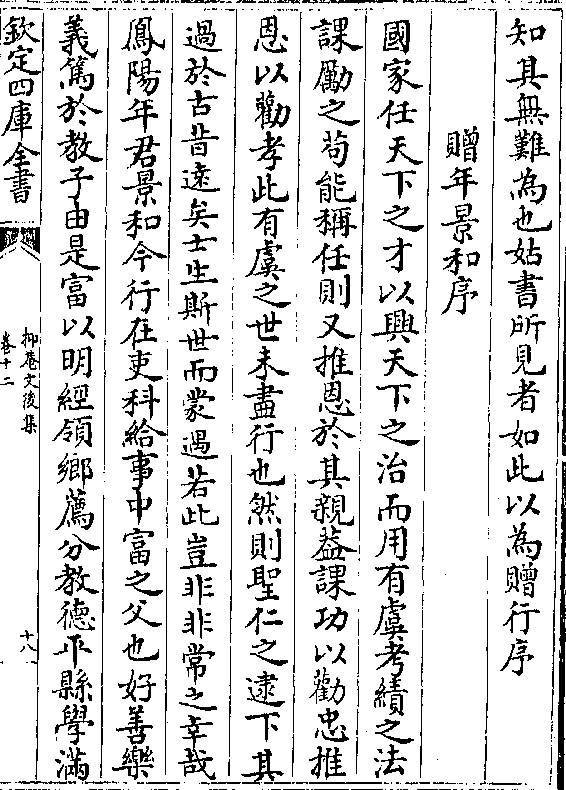 知其無難為也姑書所見者如此以為贈行序
贈年景和序
國家任天下之才以興天下之治而用有虞考績之法
課勵之苟能稱任則又推恩於其親葢課功以勸忠推
恩以勸孝此有虞之世未盡行也然則聖仁之逮下其
過於古昔遠矣士生斯世而蒙遇若此豈非非常之幸哉
鳳陽年君景和今行在吏科給事中富之父也好善樂
義篤於教子由是富以明經領鄉薦分教德平縣學滿
欽定四庫全書
抑菴文後集
卷十二
十八